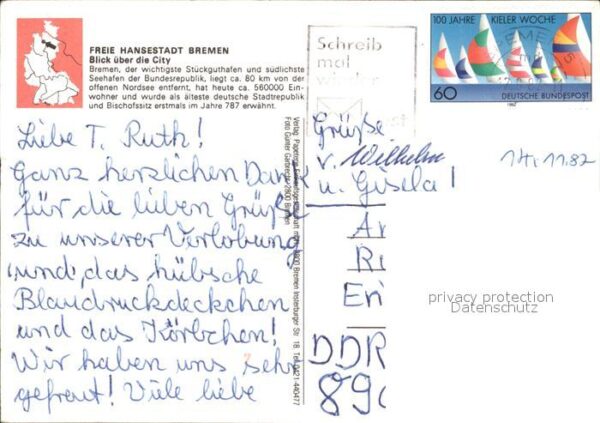 FREIE HANSESTADT BREMEN
Blick über die City
Bremen, der wichtigste Stückguthafen und südlichste
Seehafen der Bundesrepublik, liegt ca. 80 km von der
offenen Nordsee entfernt, hat heute ca. 560000 Ein-
wohner und wurde als älteste deutsche Stadtrepublik
und Bischofssitz erstmals im Jahre 787 erwähnt.
Schreib
mal
wieder
100 JAHRE KIELER WOCHE
60
DEUTSCHE BUNDESPOST
1982
Liebe T. Ruth!
Ganz herzlichen Dank
für die lieben Grüße
zu unserer Verlobung
und das hübsche
Blaudruckdeckchen
und das Körbchen!
Wir haben uns sehr
gefreut! Viele liebe
Grüße
v. Wilhelm
u. Gisela!
14. 11. 82
DDR
privacy protection
Datenschutz
2800 Bremen Insterburger Str. 18 Tel. 0421-440477
2800 Bremen